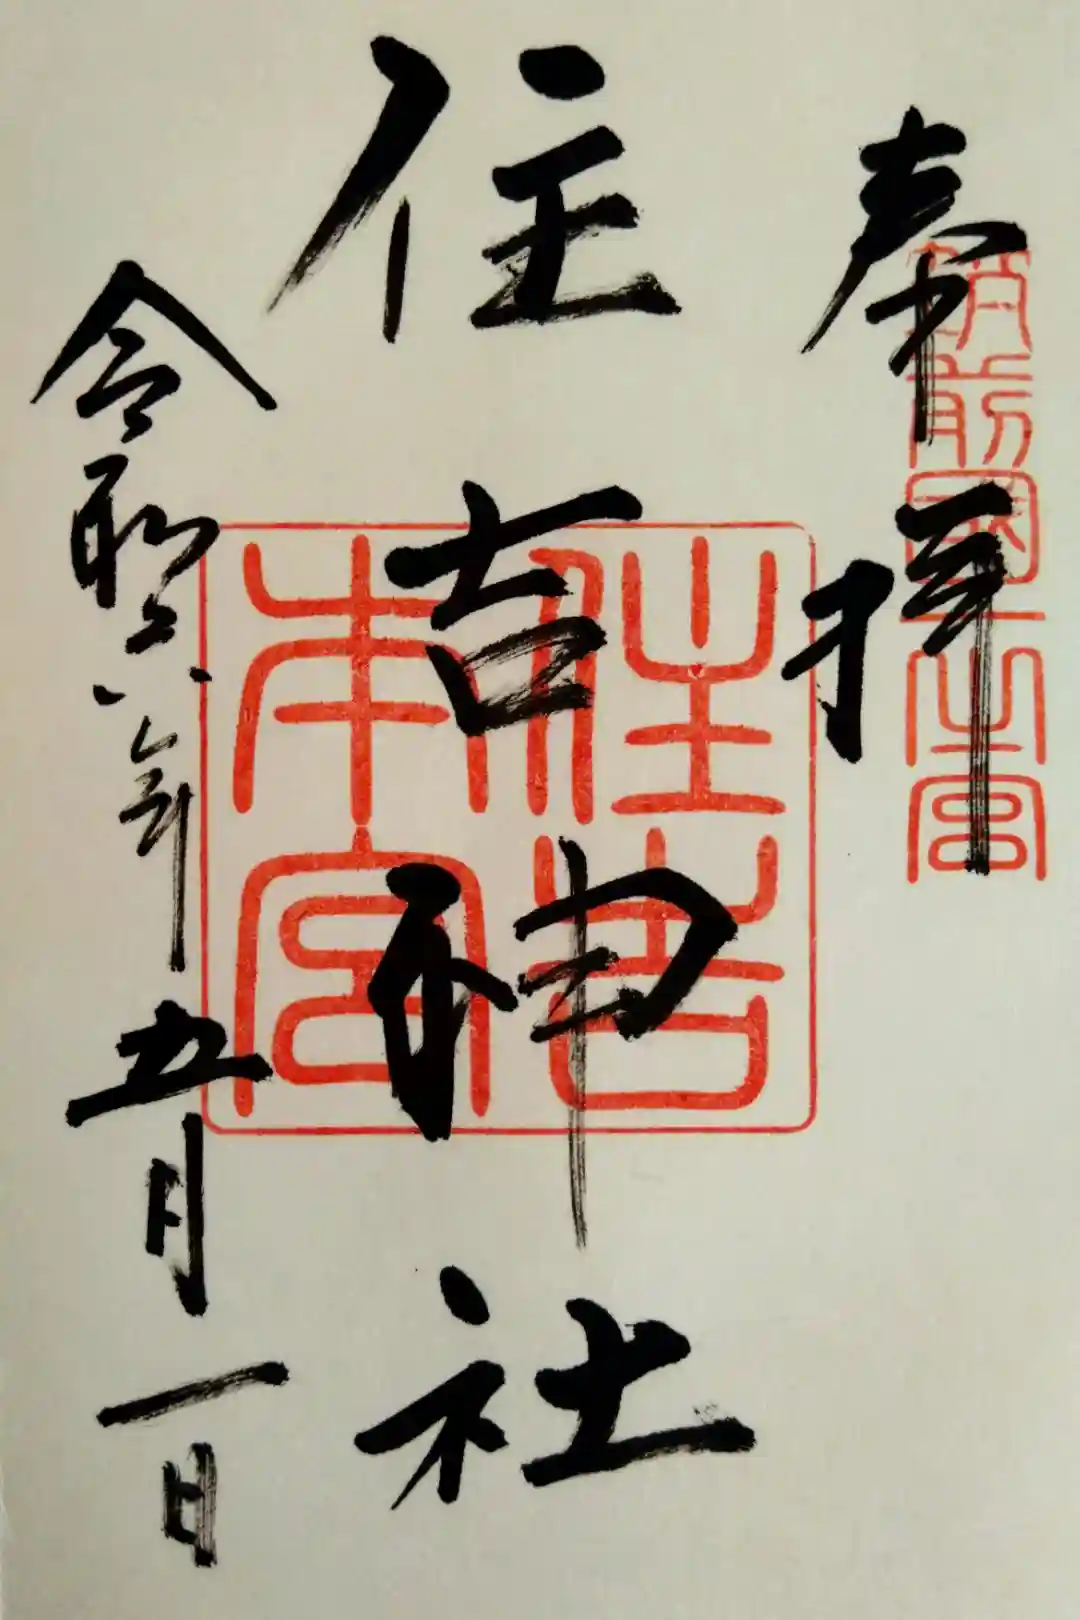 奉拝
筑前國一之宮
住吉神社
住吉本宮
令和六年五月一日